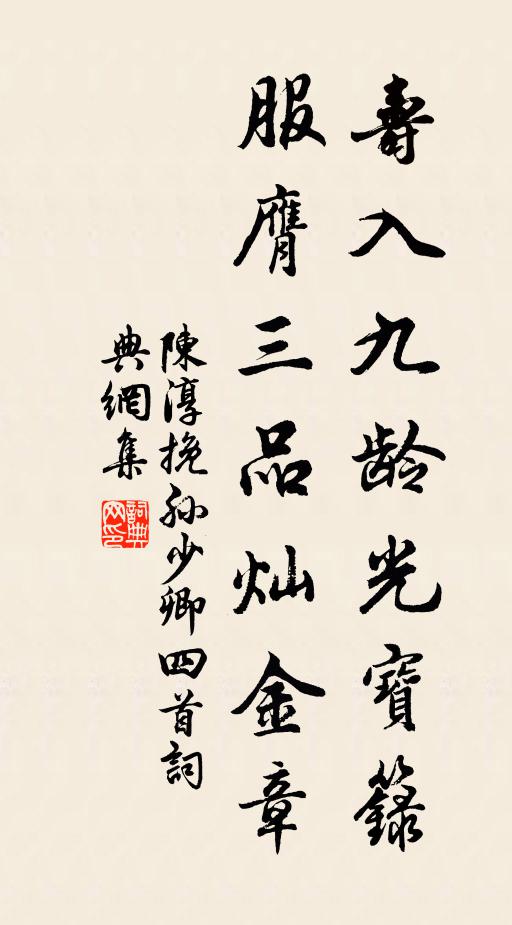 壽入九龄光寶籙
服膺三品灿金章
陳淳挽孙少卿四首詞
典網集
詞典
网印